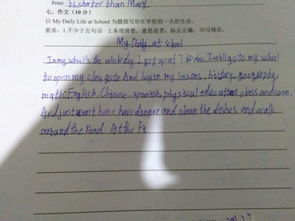 Peter is shorter than Mary.
七、作文（10分）
以 My Daily Life at School 为题描写你在学校的一天的生活。
要求：1.不少于五句话 2.条理清楚，意思连贯，标点正确，书写规范。
My Daily at school
In my school's the whole day. I get up at 7 to my school
to open my class gate And began my lessons, history, geography
math, English, Chinese, spanish, physical education class and soon.
And just went home have danper and clean the dishes and walk
around the road. At the